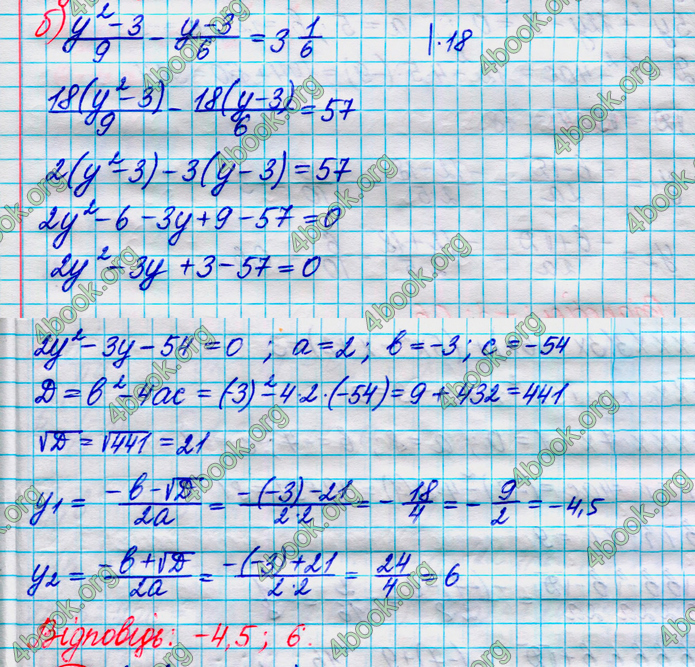 б) (y²-3)/9 - (y-3)/6 = 3 1/6 |·18
18(y²-3)/9 - 18(y-3)/6 = 57
2(y²-3)-3(y-3)=57
2y²-6-3y+9-57=0
2y²-3y+3-57=0
2y²-3y-54=0; a=2; b=-3; c=-54
D=b²-4ac=(-3)²-4·2·(-54)=9+432=441
√D=√441=21
y₁ = (-b-√D)/2a = (-(-3)-21)/2·2 = -18/4 = -9/2 = -4,5
y₂ = (-b+√D)/2a = (-(-3)+21)/2·2 = 24/4 = 6
Відповідь: -4,5; 6.
4book.org